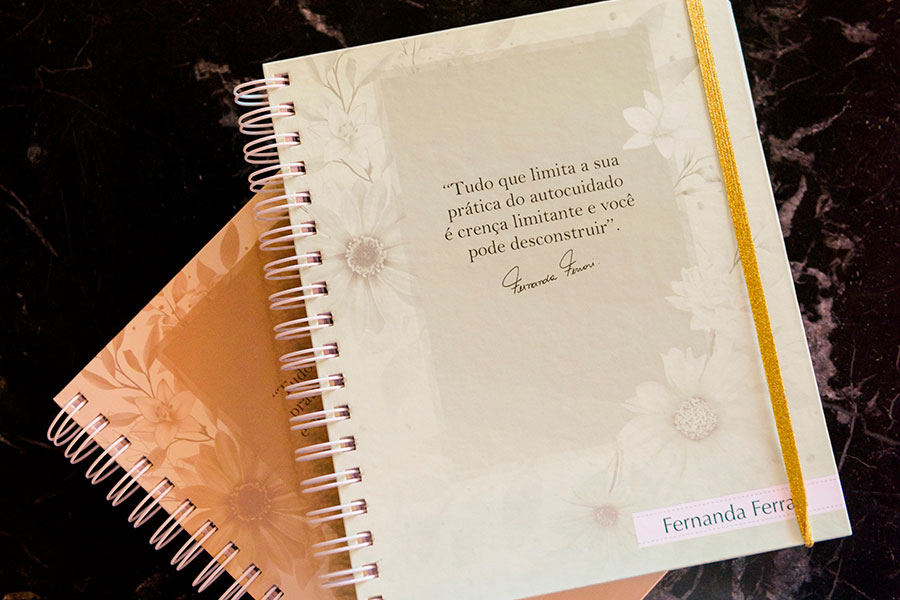 “Tudo que limita a sua
prática do autocuidado
é crença limitante e você
pode desconstruir”.
Fernanda Ferrari.
Fernanda Ferra
“Tudo
prá
é